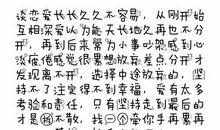 谈恋爱长长久久不容易，从刚开始
互相深爱以为能天长地久再也不分
开，再到后来常为小事吵架感到心
淡疲倦感觉很累想放弃差点分开才
发现离不开，选择中途放弃的，坚
持不了注定得不到幸福，爱有太多
考验和责任，只有坚持走到最后的
才是拆不散，找一个爱你手再累再